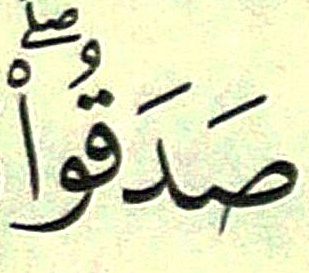 صَدَقُوا۟ۖ